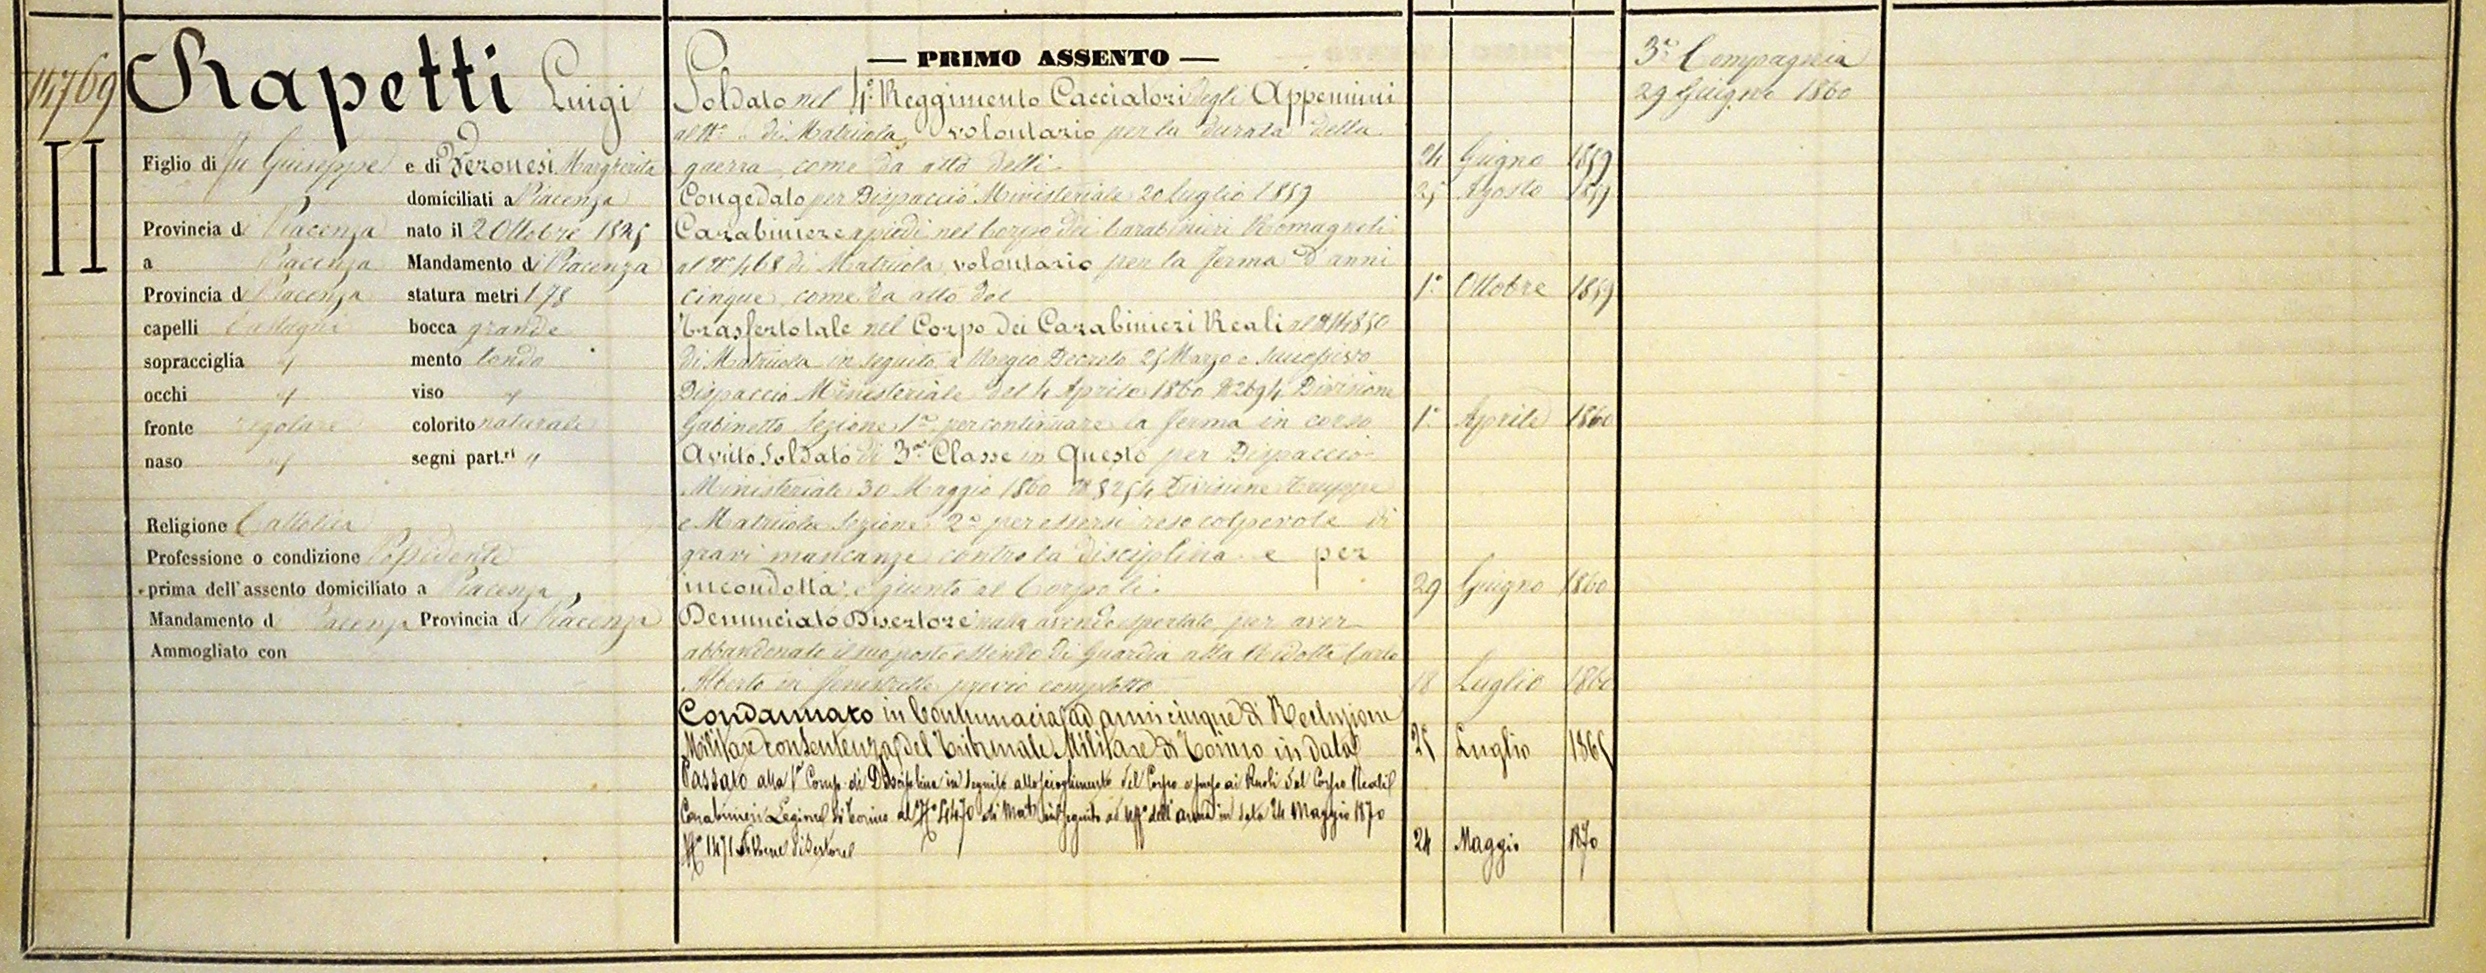 14769
II
Rapetti Luigi
Figlio di fu Giuseppe e di Veronesi Margherita
domiciliati a Piacenza
Provincia di Piacenza nato il 2 Ottobre 1825
a Piacenza Mandamento di Piacenza
Provincia di Piacenza statura metri 1,78
capelli Castagni bocca grande
sopracciglia " mento tondo
occhi " viso "
fronte regolare colorito naturale
naso " segni part.ri "
Religione Cattolica
Professione o condizione Possidente
prima dell'assento domiciliato a Piacenza
Mandamento di Piacenza Provincia di Piacenza
Ammogliato con
— PRIMO ASSENTO —
Soldato nel 4° Reggimento Cacciatori degli Appennini
al N° di Matricola, volontario per la durata della
guerra come da atto delli 24 Giugno 1859
Congedato per Dispaccio Ministeriale 20 Luglio 1859 25 Agosto 1859
Carabiniere a piedi nel Corpo dei Carabinieri Romagnoli
al N° 468 di Matricola, volontario per la ferma d'anni
cinque, come da atto del 1° Ottobre 1859
Trasferto tale nel Corpo dei Carabinieri Reali al N° 14850
di Matricola in seguito a Regio Decreto 25 Marzo e successivo
Dispaccio Ministeriale del 4 Aprile 1860 N° 2694 Divisione
Gabinetto Sezione 1a per continuare la ferma in corso 1° Aprile 1860
Avuto Soldato di 3a Classe in Questo per Dispaccio
Ministeriale 30 Maggio 1860 N° 8254 Divisione Truppe
e Matricola Sezione 2a per essersi reso colpevole di
gravi mancanze contro la disciplina e per
incondotta: e giunto al Corpo li 29 Giugno 1860
Denunciato Disertore nulla avendo esportato per aver
abbandonato il suo posto essendo di Guardia alla Ridotta Carlo
Alberto in Fenestrelle previo complotto 18 Luglio 1860
Condannato in Contumacia ad anni cinque di Reclusione
Militare con Sentenza del Tribunale Militare di Torino in data 25 Luglio 1865
Passato alla 1a Comp. di Disciplina in seguito allo scioglimento del Corpo e ai Ruoli del Corpo Reali
Carabinieri Legione di Torino al N° 5470 di Mat. in seguito ad uff° dell'arma in data 24 Maggio 1870
N° 1471 disertore 24 Maggio 1870
3a Compagnia
29 Giugno 1860